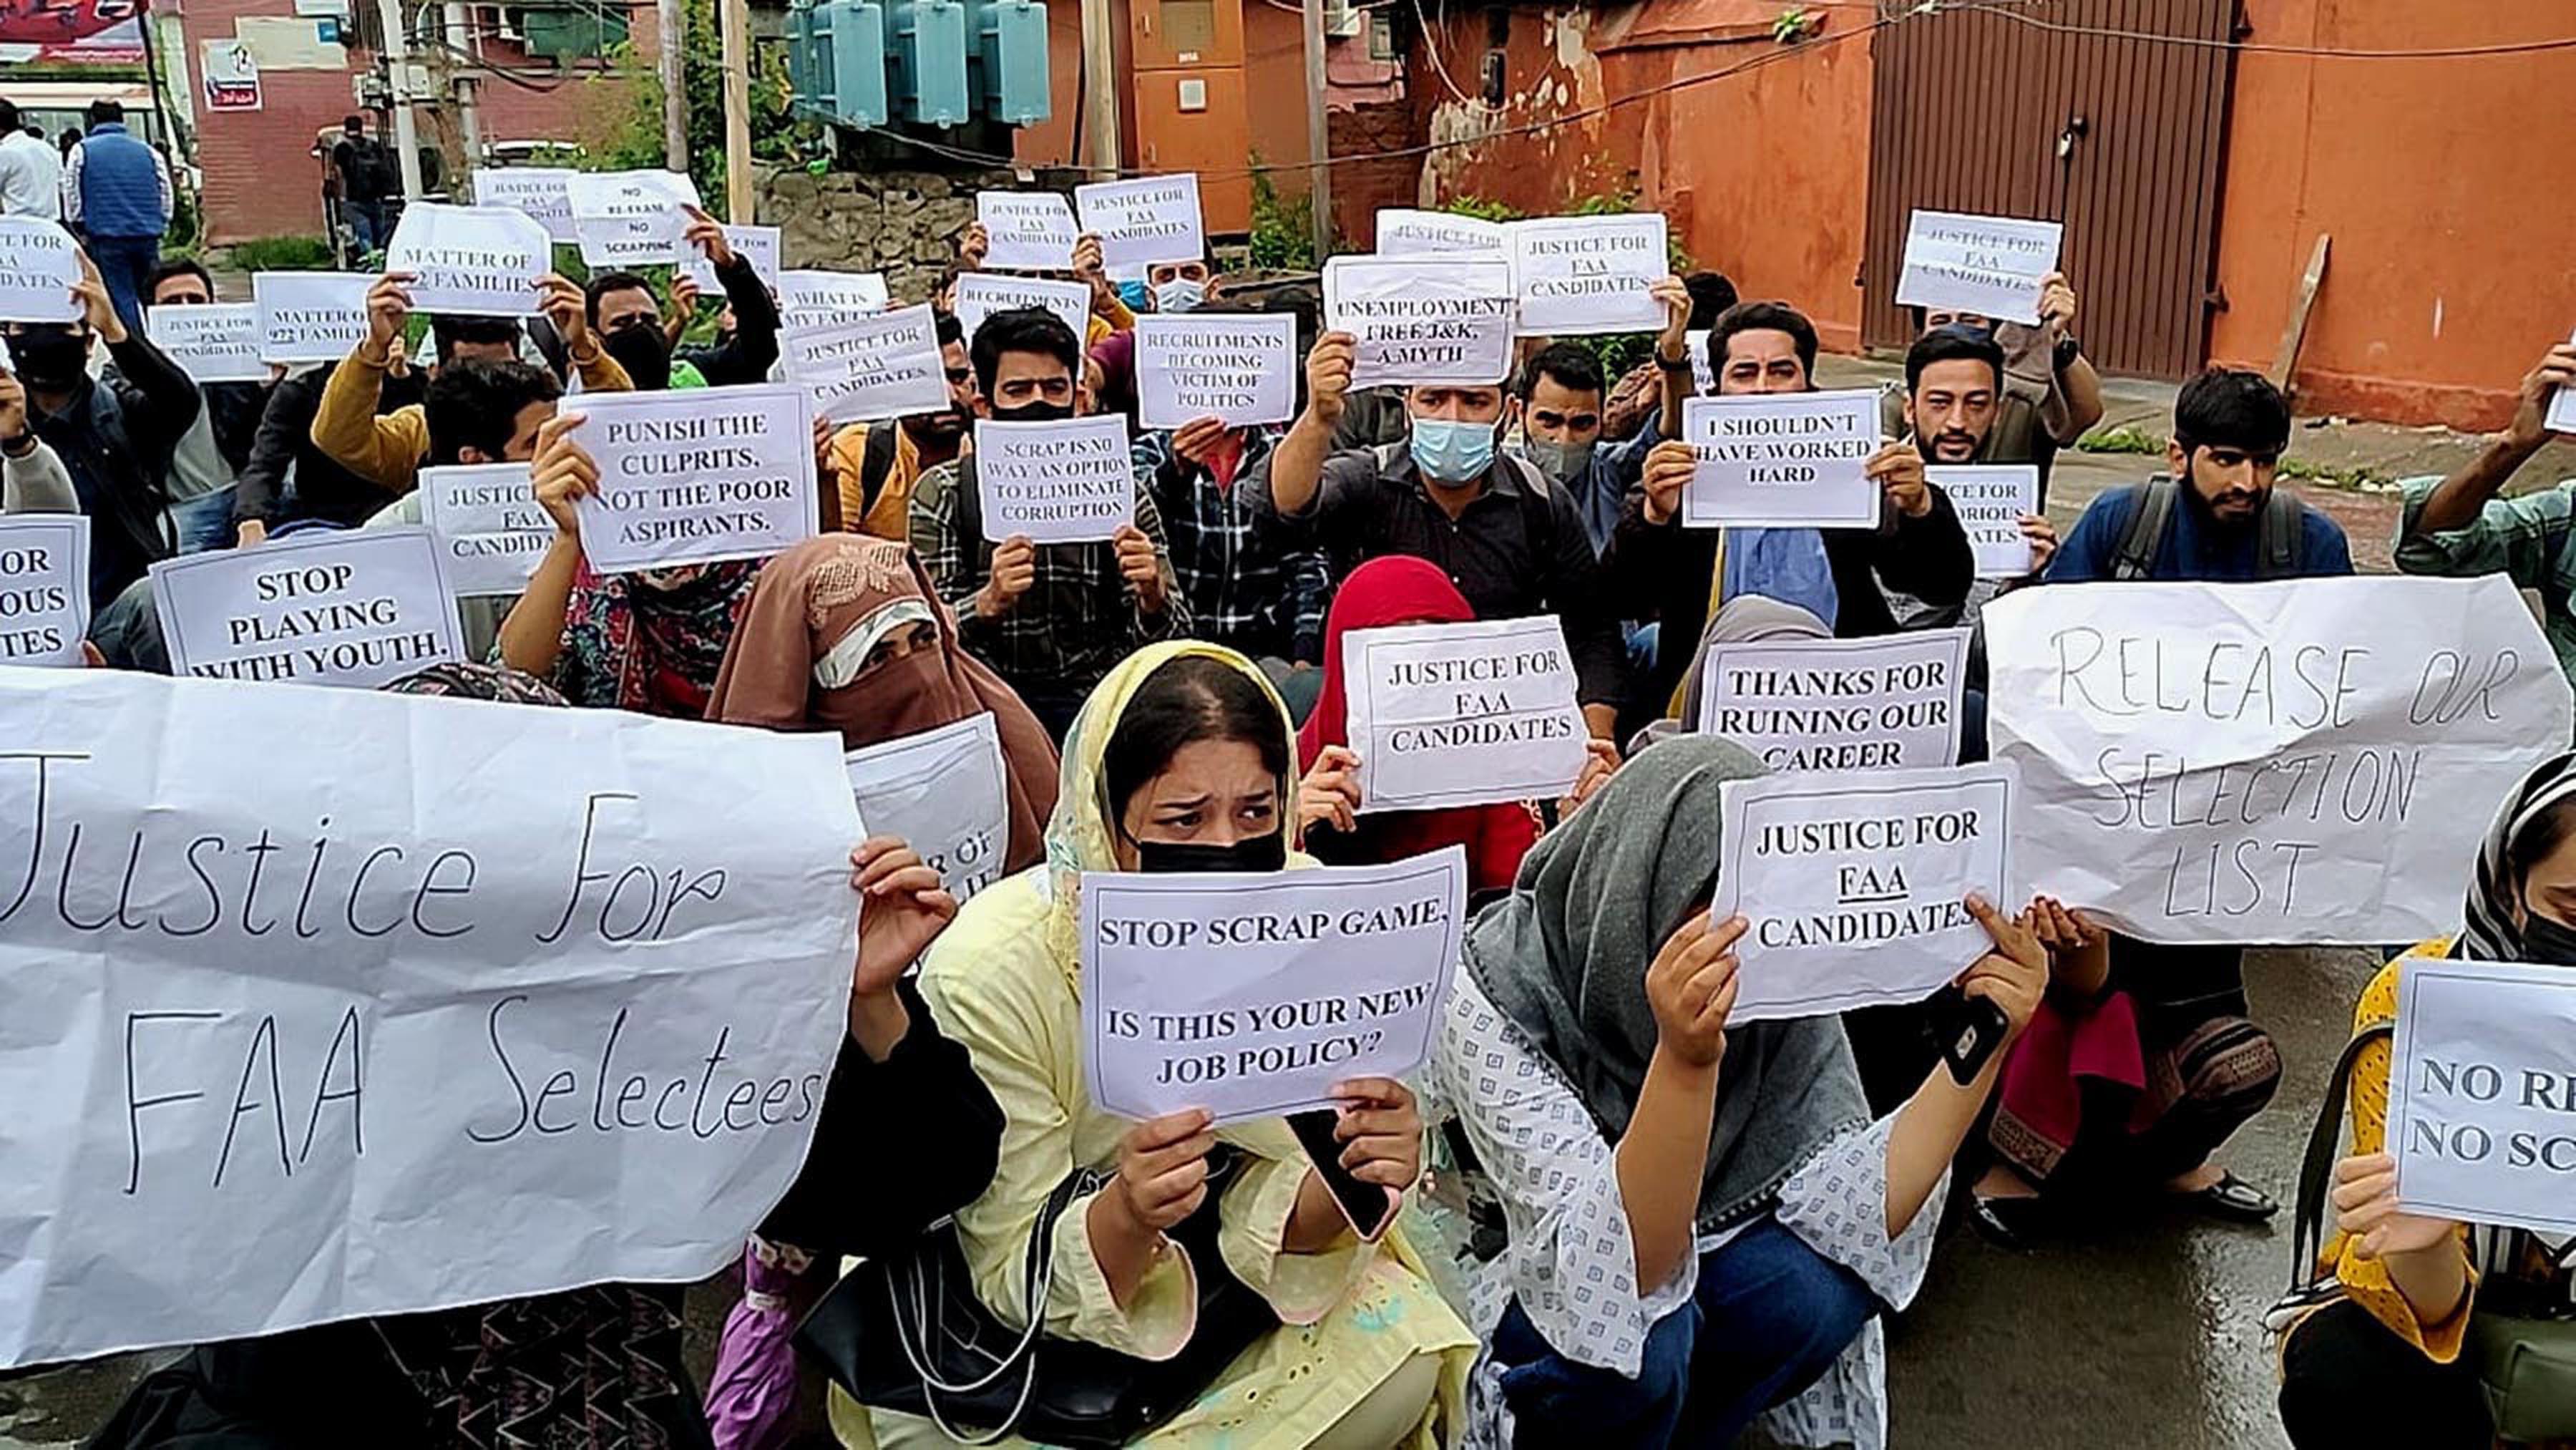 JUSTICE FOR
FAA
NO
RE-EXAM
NO
SCRAPPING
JUSTICE FOR
FAA
CANDIDATES
JUSTICE FOR
FAA
CANDIDATES
JUSTICE FOR
JUSTICE FOR
FAA
CANDIDATES
JUSTICE FOR
FAA
CANDIDATES
FOR
DATES
MATTER OF
2 FAMILIES
FOR
MATTER O
972 FAMILI
JUSTICE FOR
FAA
CANDIDATES
WHAT IS
MY FAULT
RECRUITMENTS
JUSTICE FOR
FAA
CANDIDATES
RECRUITMENTS
BECOMING
VICTIM OF
POLITICS
UNEMPLOYMENT
FREE J&K,
A MYTH
PUNISH THE
CULPRITS,
NOT THE POOR
ASPIRANTS.
SCRAP IS NO
WAY AN OPTION
TO ELIMINATE
CORRUPTION
I SHOULDN'T
HAVE WORKED
HARD
JUSTIC
FAA
CANDIDA
CE FOR
ORIOUS
ATES
OR
OUS
TES
STOP
PLAYING
WITH YOUTH.
JUSTICE FOR
FAA
CANDIDATES
THANKS FOR
RUINING OUR
CAREER
RELEASE OUR
SELECTION
LIST
Justice For
FAA Selectees
R OF
STOP SCRAP GAME,
IS THIS YOUR NEW
JOB POLICY?
JUSTICE FOR
FAA
CANDIDATES
NO RE
NO SC